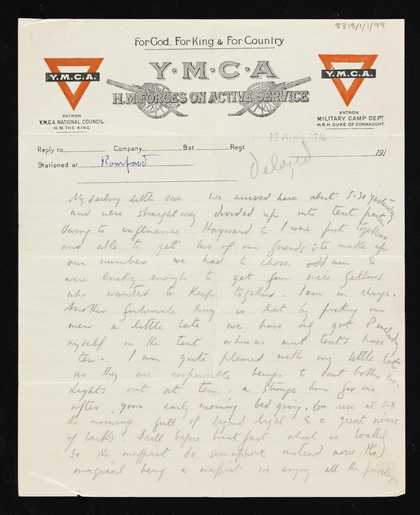 8313/1/1/99
For God, For King & For Country
Y·M·C·A
H.M. FORCES ON ACTIVE SERVICE
Y.M.C.A.
PATRON
Y.M.C.A. NATIONAL COUNCIL
H.M. THE KING
Y.M.C.A.
PATRON
MILITARY CAMP DEPT
H.R.H. DUKE OF CONNAUGHT.
Reply to Company Bat Regt
Stationed at Romford 191
Delayed
My darling little one We arrived here about 5-30 yesterday
and were straightway divided up into tent party
Owing to influence Hayward & I were put together
and able to get two of our friends & to make up
our number we had to chose odd men &
were lucky enough to get four nice fellows
who wanted to keep together. I am in charge.
Another fortunate thing is that by picking our
men a little late we have only got
myself in the tent whereas most tents have
ten. I am quite pleased with my little
as they are responsible beings & dont bother me.
Lights out at ten, a strange time for me
after your early morning bed going. We rise at 5-30
the morning full of light & a great noise
of larks. Drill before breakfast which is
So the do semaphore instead now. The
original being a we enjoy all the